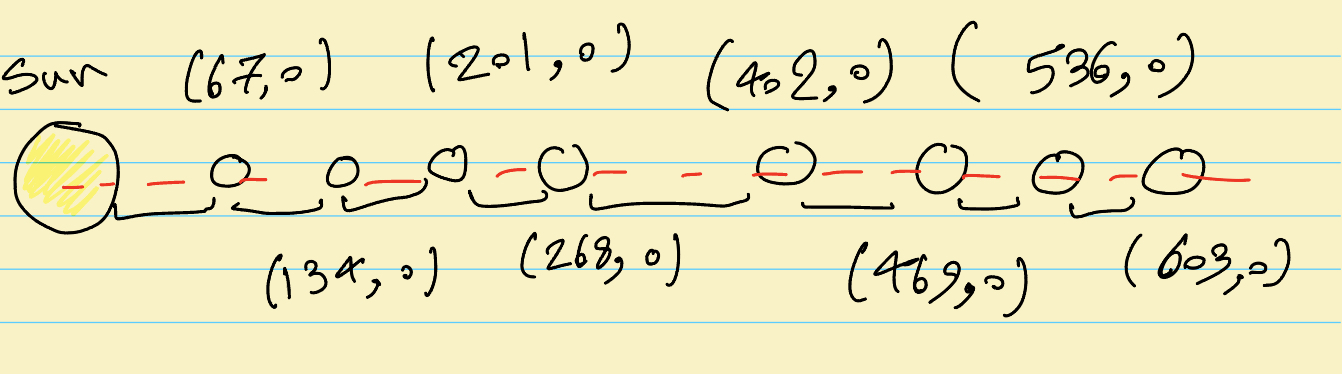 Sun (67,0) (201,0) (402,0) (536,0)
(134,0) (268,0) (469,0) (603,0)